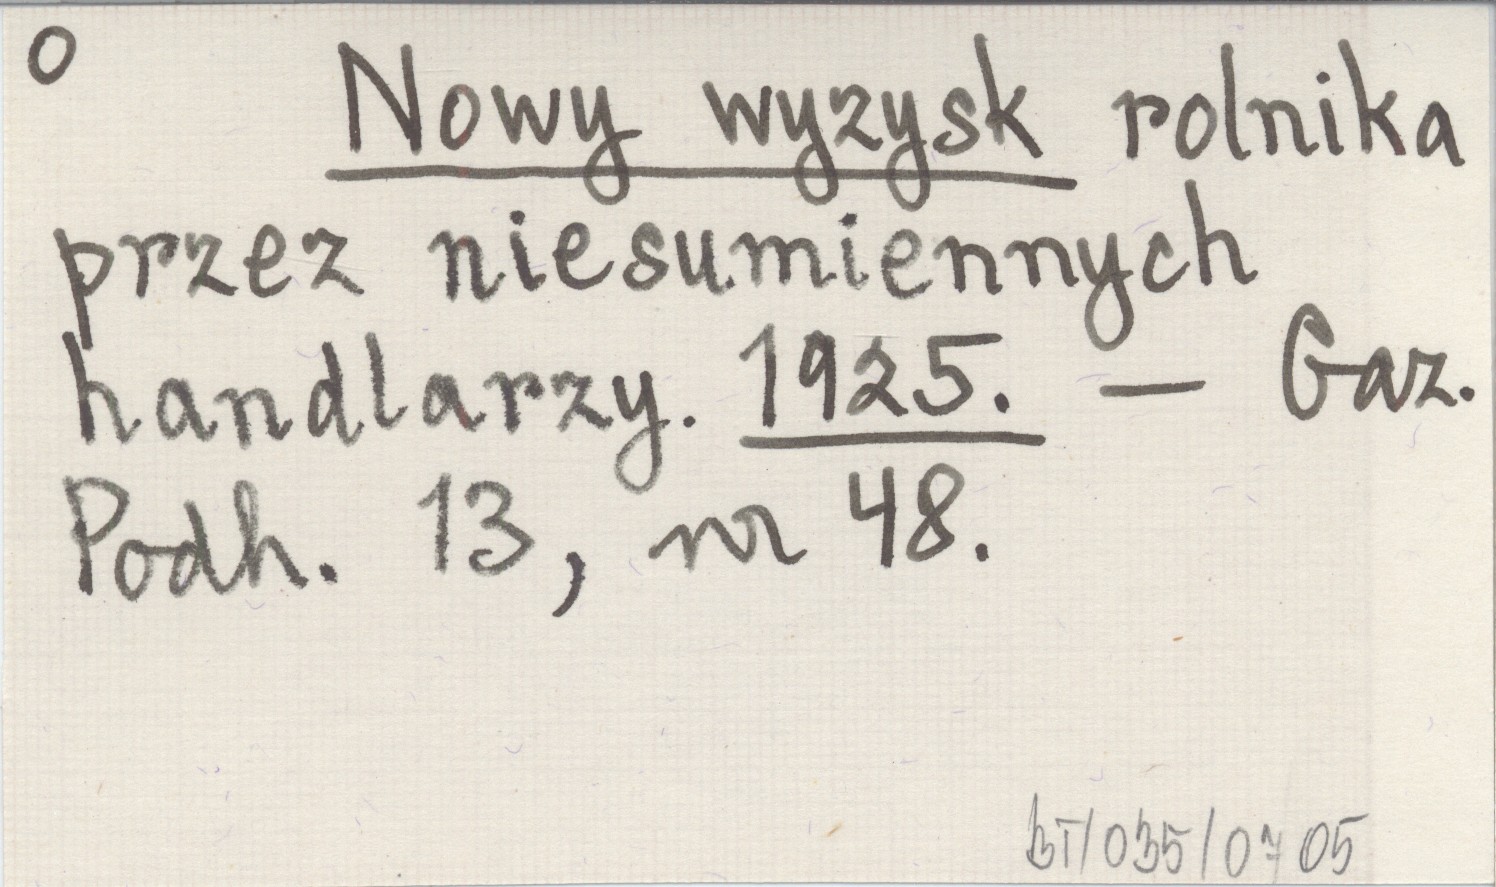 O
Nowy wyzysk rolnika
przez niesumiennych
handlarzy. 1925. — Gaz.
Podh. 13, nr 48.
BT/035/0705